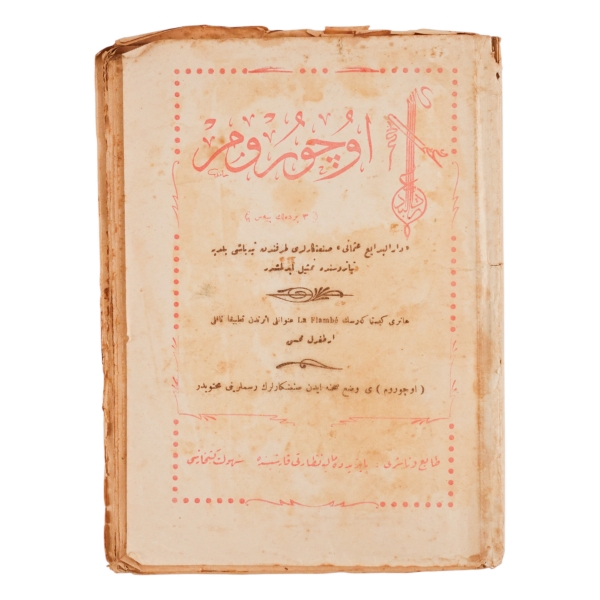 اوچوروم
( ٣ پرده‌لك پيه‌س )
« دارالبدايع عثمانى » صنعتكارلرى طرفندن تپه‌باشى بلديه
تياتروسنده تمثيل ايدلمشدر
هانرى كيستا كرس La Flambé عنوانلى اثرندن تطبيقا ناقلى
ارطغرل محسن
( اوچوروم ) ى وضع صحنه ايدن صنعتكارلرك رسملرينى محتويدر
طابع و ناشرى